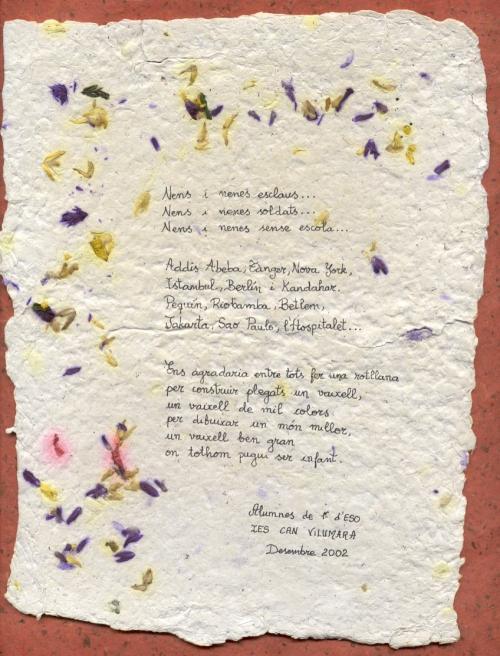 Nens i nenes esclaus...
Nens i nenes soldats...
Nens i nenes sense escola...
Addis Abeba, Tànger, Nova York,
Istambul, Berlín i Kandahar.
Pequín, Riobamba, Betlem,
Jakarta, Sao Paulo, l'Hospitalet...
Ens agradaria entre tots fer una rotllana
per construir plegats un vaixell,
un vaixell de mil colors
per dibuixar un món millor,
un vaixell ben gran
on tothom pugui ser infant.
Alumnes de 1r d'ESO
IES CAN VILUMARA
Desembre 2002